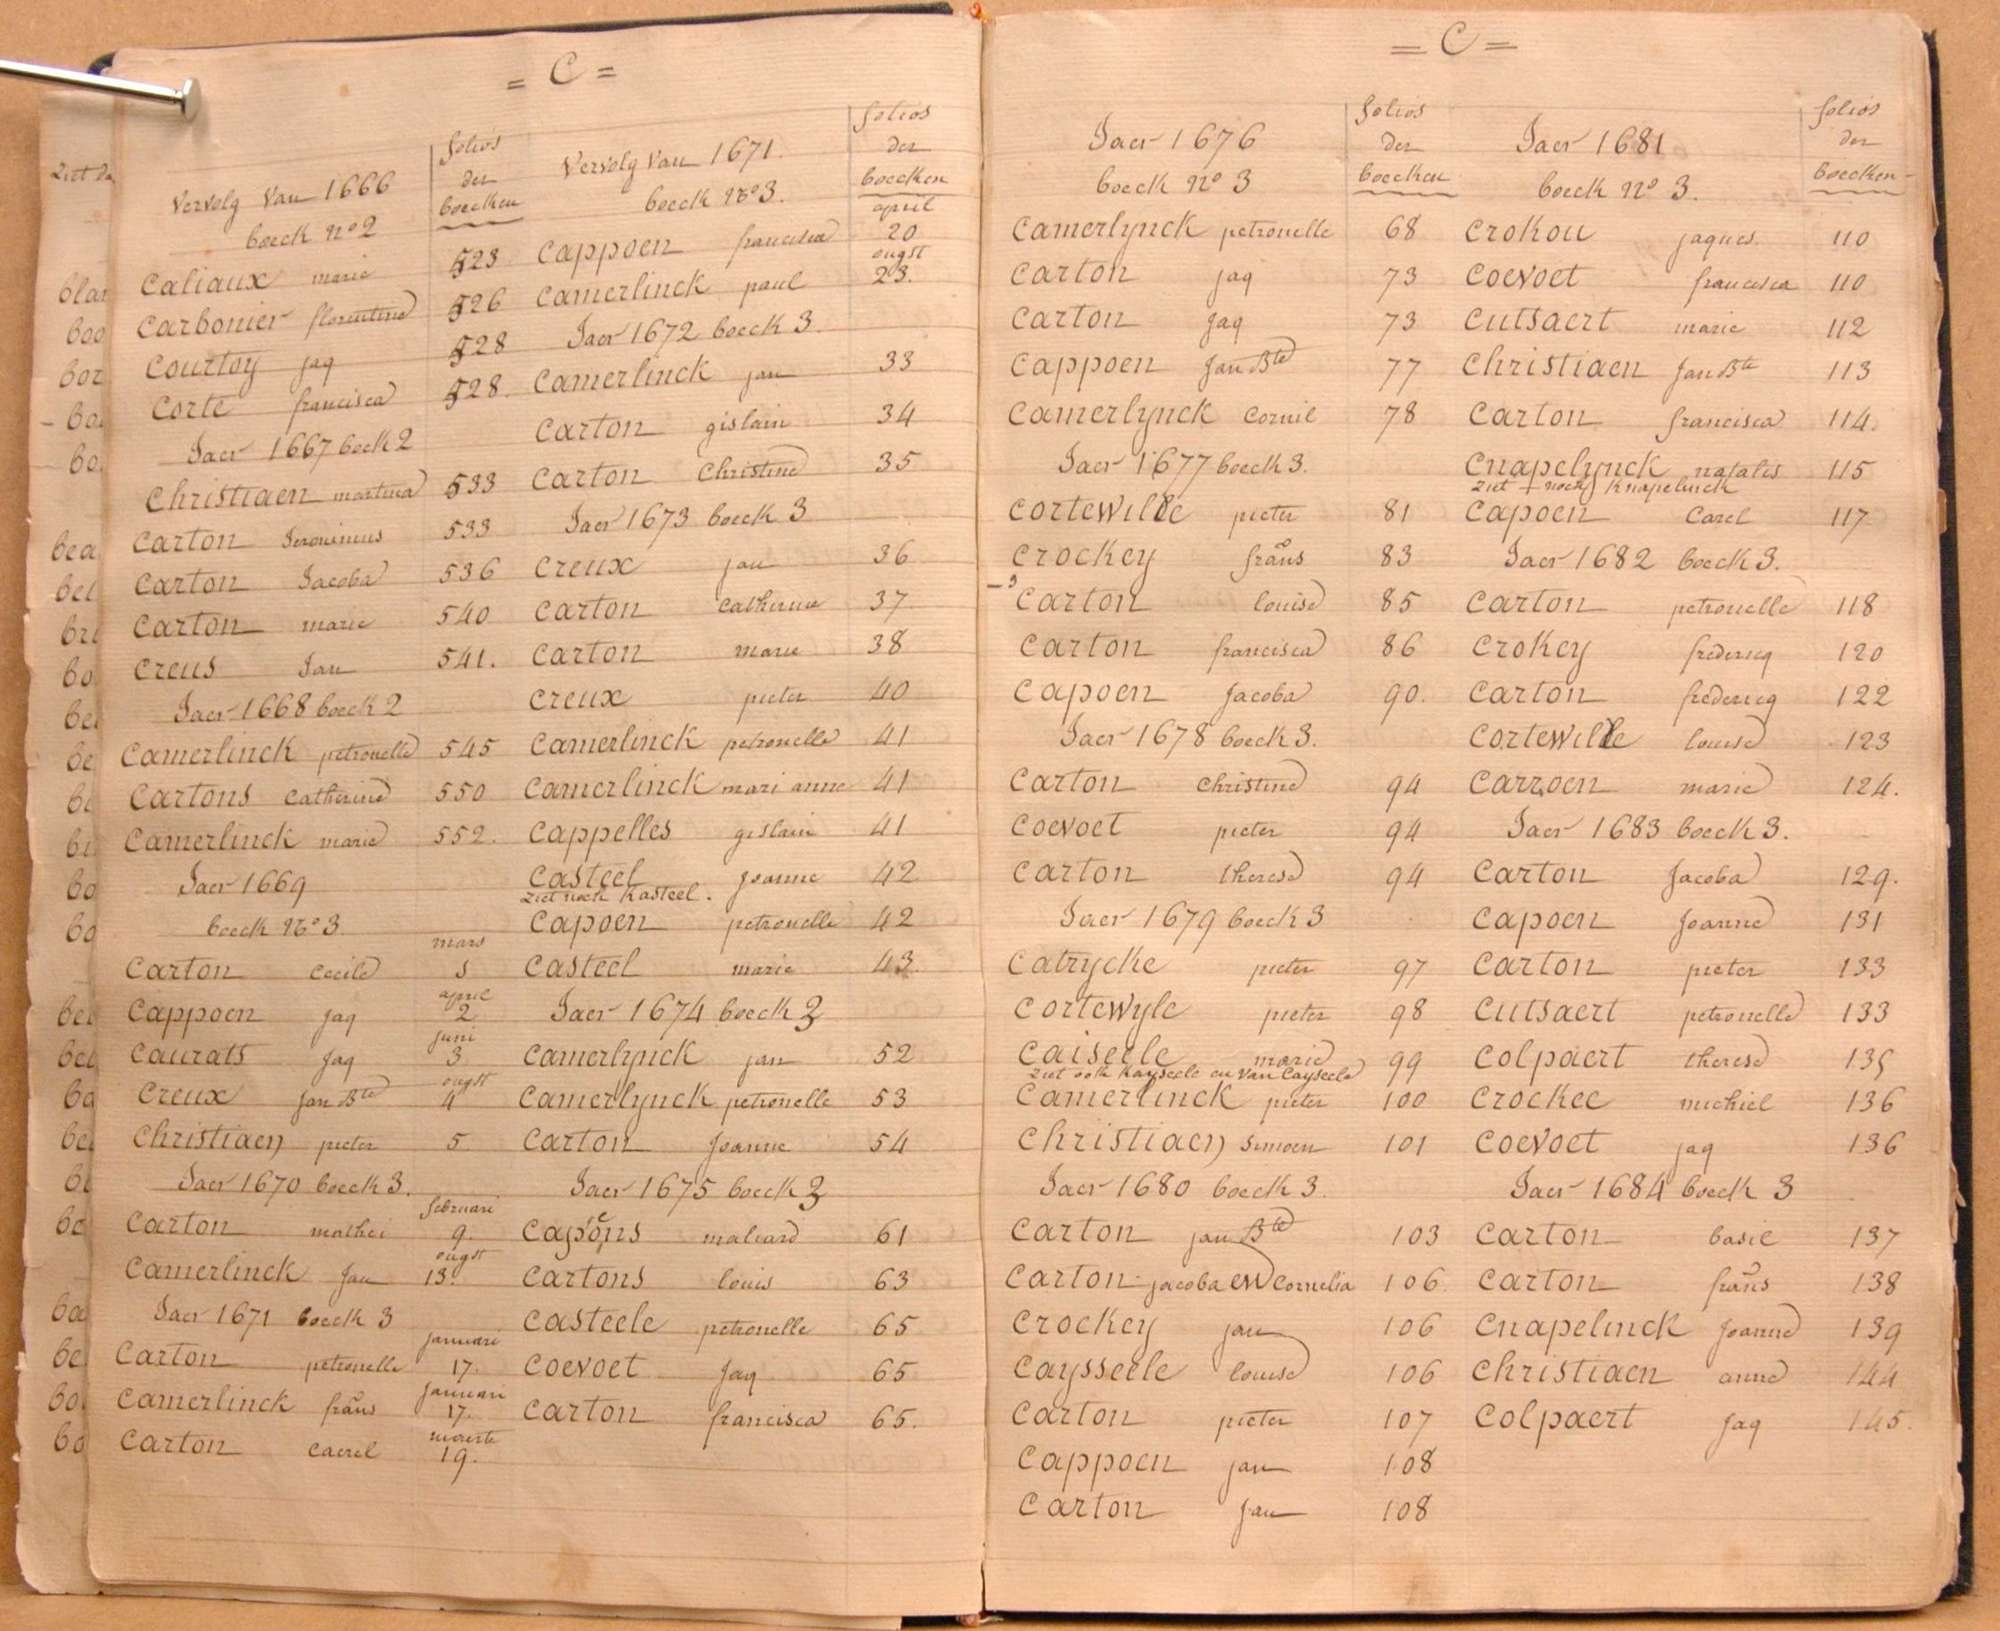 = C =
Vervolg Van 1666
boeck No 2
folios
der
boecken
Caliaux marie 523
Carbonier florentine 526
Courtoy jaq 528
Corte francisca 528.
Jaer 1667 boeck 2
Christiaen martina 533
Carton Jeronimus 533
Carton Jacoba 536
Carton marie 540
Creus Jan 541.
Jaer 1668 boeck 2
Camerlinck petronelle 545
Cartons Catherine 550
Camerlinck marie 552.
Jaer 1669
boeck No 3
mars
Carton Cecile 5
april
Cappoen jaq 2
juni
Caurats jaq 3
ougst
Creux jan Bte 4
Christiaen pieter 5
Jaer 1670 boeck 3.
februari
Carton mathei 9.
ougst
Camerlinck Jan 13.
Jaer 1671 boeck 3
januari
Carton petronelle 17.
januari
Camerlinck frans 17.
Carton Caerel 19.
Vervolg Van 1671.
boeck No 3.
folios
der
boecken
april
Cappoen francisca 20
ougst
Camerlinck paul 23.
Jaer 1672 boeck 3.
Camerlinck jan 33
Carton gislain 34
Carton Christine 35
Jaer 1673 boeck 3
Creux jan 36
Carton Catherine 37
Carton marie 38
Creux pieter 40
Camerlinck petronelle 41
Camerlinck mari anne 41
Cappelles gislain 41
Casteel Joanne 42
ziet noch Kasteel.
Capoen petronelle 42
Casteel marie 43.
Jaer 1674 boeck 3
Camerlynck jan 52
Camerlynck petronelle 53
Carton Joanne 54
Jaer 1675 boeck 3
Capoens maliard 61
Cartons louis 63
Casteele petronelle 65
Coevoet Jaq 65
Carton francisca 65.
= C =
Jaer 1676
boeck No 3
folios
der
boecken
Camerlynck petronelle 68
Carton jaq 73
Carton Jaq 73
Cappoen Jan Bte 77
Camerlynck Cornil 78
Jaer 1677 boeck 3.
Cortewilde pieter 81
Crockey frans 83
Carton louise 85
Carton francisca 86
Capoen Jacoba 90.
Jaer 1678 boeck 3.
Carton Christine 94
Coevoet pieter 94
Carton therese 94
Jaer 1679 boeck 3
Catrycke pieter 97
Cortewyle pieter 98
Caiseele marie 99
ziet ook Kayseele en Van Cayseele
Camerlinck pieter 100
Christiaen Simoen 101
Jaer 1680 boeck 3.
Carton jan Bte 103
Carton jacoba en Cornelia 106.
Crockey jan 106
Caysseele louise 106
Carton pieter 107
Cappoen jan 108
Carton Jan 108
Jaer 1681
boeck No 3.
folios
der
boecken
Crokou jaques. 110
Coevoet francisca 110
Cutsaert marie 112
Christiaen Jan Bte 113
Carton francisca 114.
Cnapelynck natalis 115
ziet noch Knapelinck
Capoen Carel 117
Jaer 1682 boeck 3.
Carton petronelle 118
Crokey fredericq 120
Carton fredericq 122
Cortewille louise 123
Carzoen marie 124.
Jaer 1683 boeck 3.
Carton Jacoba 129.
Capoen Joanne 131
Carton pieter 133
Cutsaert petronelle 133
Colpaert therese 135
Crockee michiel 136
Coevoet jaq 136
Jaer 1684 boeck 3
Carton basil 137
Carton frans 138
Cnapelinck Joanne 139
Christiaen anne 144
Colpaert Jaq 145.